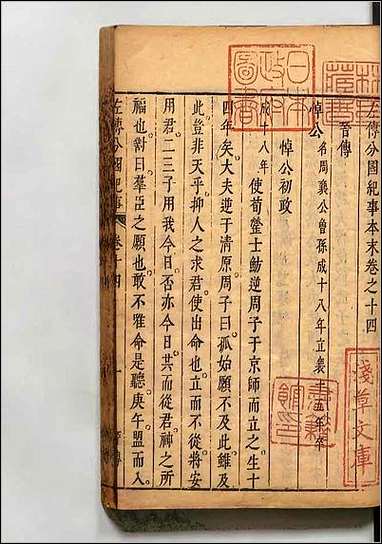 左傳分國紀事本末卷之十四
晉傳
悼公名周襄公曾孫成十八年立襄十五年卒
悼公初政
成十八年使荀罃士魴逆周子于京師而立之生十
四年矣大夫逆于清原周子曰孤始願不及此雖及
此豈非天乎抑人之求君使出命也立而不從將安
用君二三子用我今日否亦今日共而從君神之所
福也對曰羣臣之願也敢不唯命是聽庚午盟而入
左傳分國紀事 卷十四 一
日本政府圖書
淺草文庫